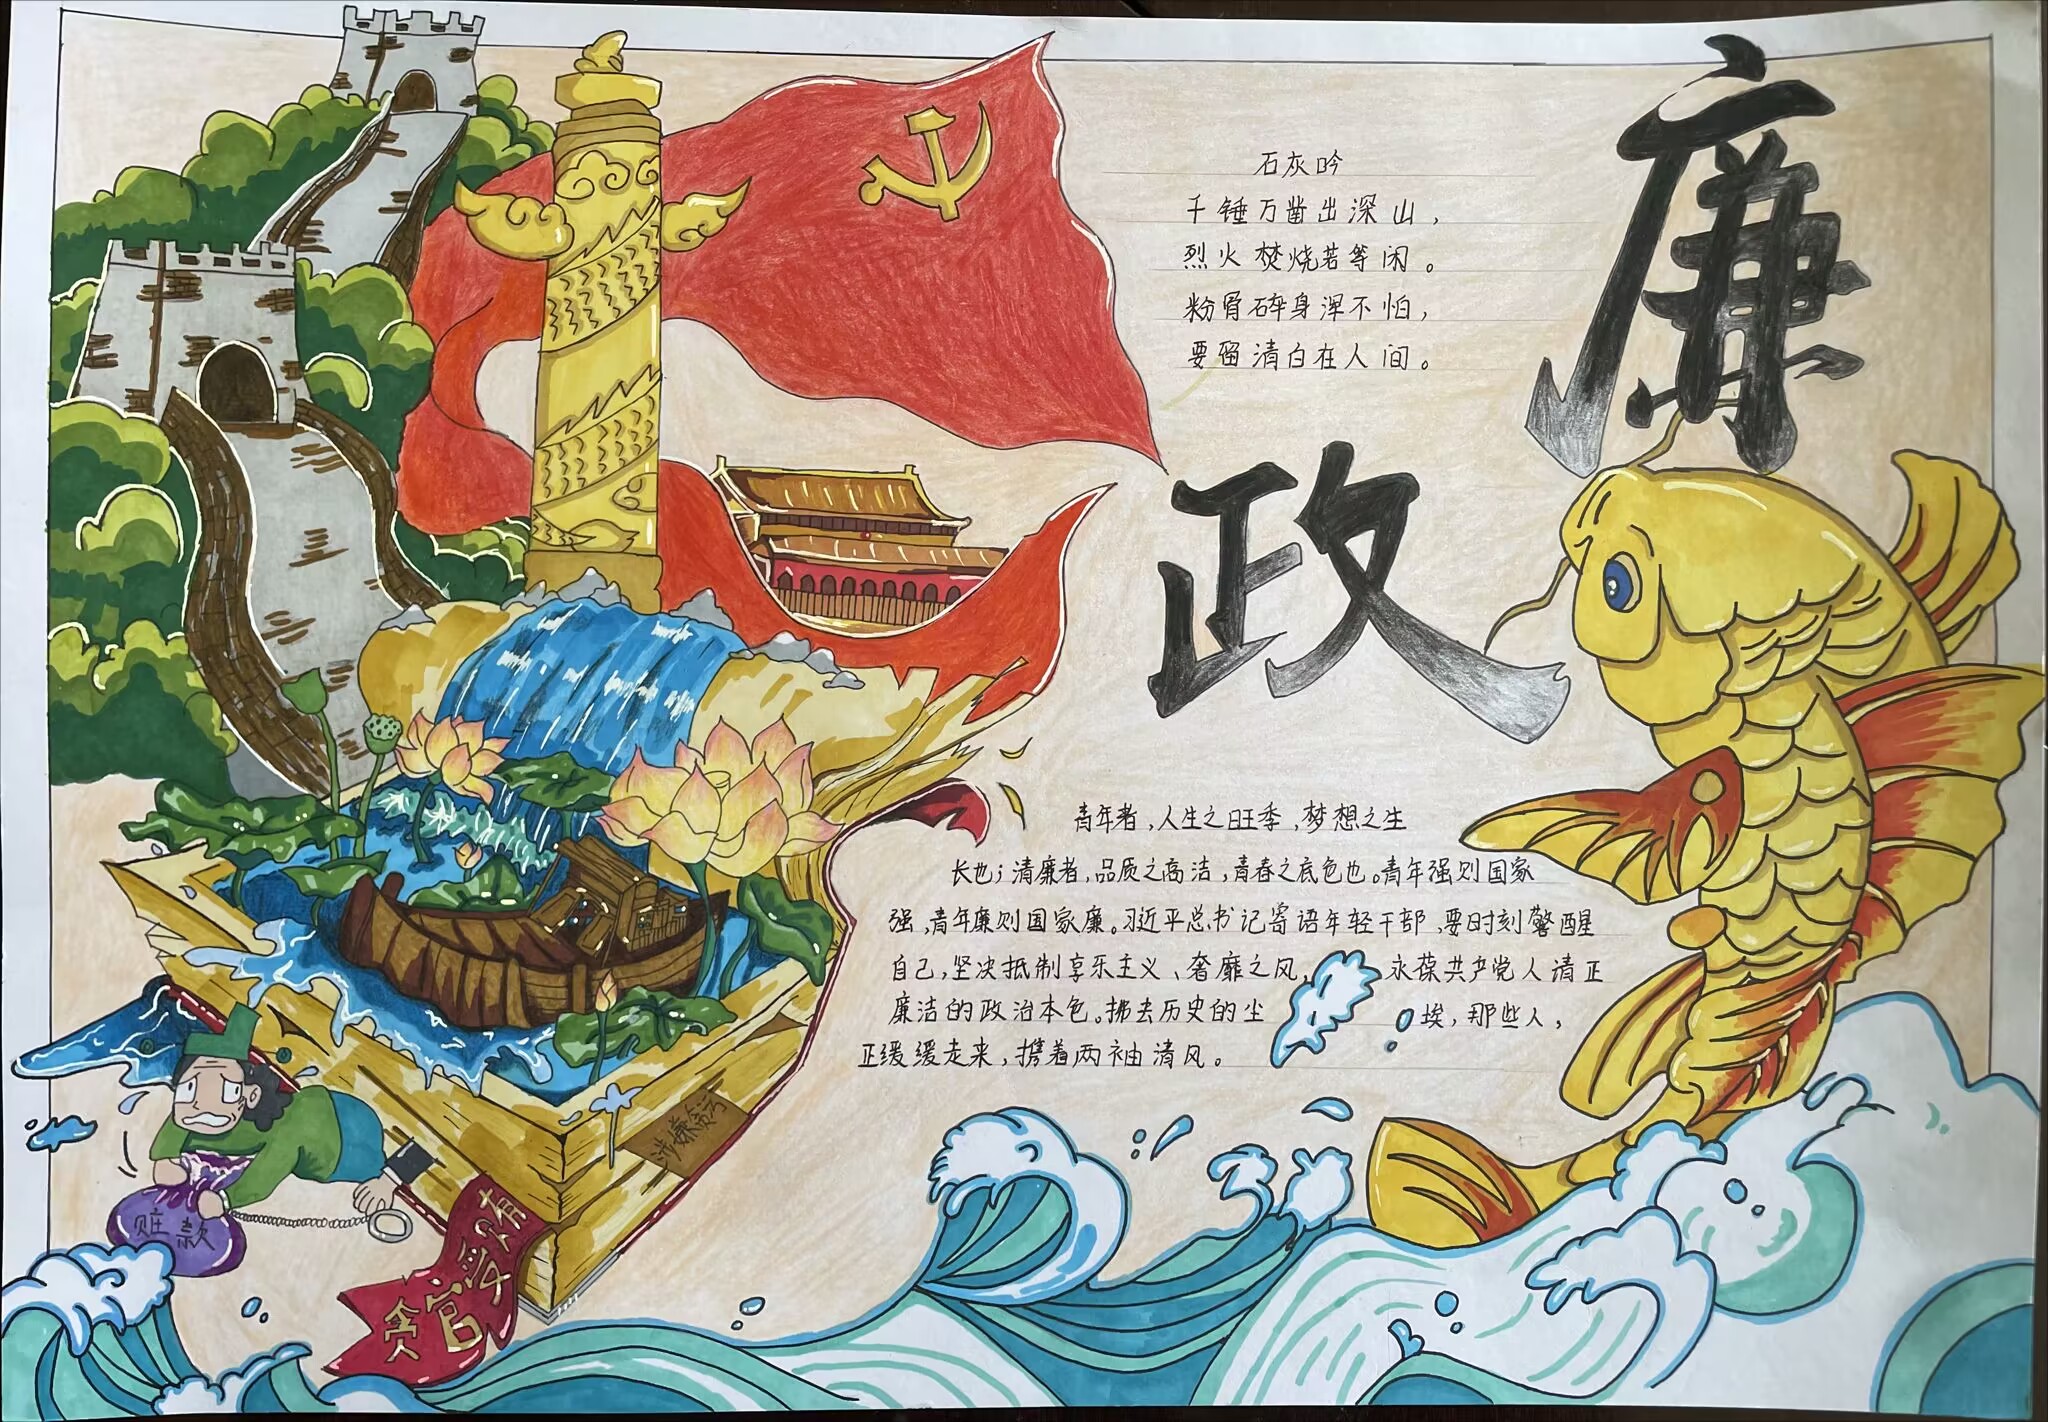 廉
政
石灰吟
千锤万凿出深山，
烈火焚烧若等闲。
粉骨碎身浑不怕，
要留清白在人间。
青年者，人生之旺季，梦想之生
长也；清廉者，品质之高洁，青春之底色也。青年强则国家
强，青年廉则国家廉。习近平总书记寄语年轻干部，要时刻警醒
自己，坚决抵制享乐主义、奢靡之风，永葆共产党人清正
廉洁的政治本色。拂去历史的尘埃，那些人，
正缓缓走来，携着两袖清风。
赃款
贪官受贿